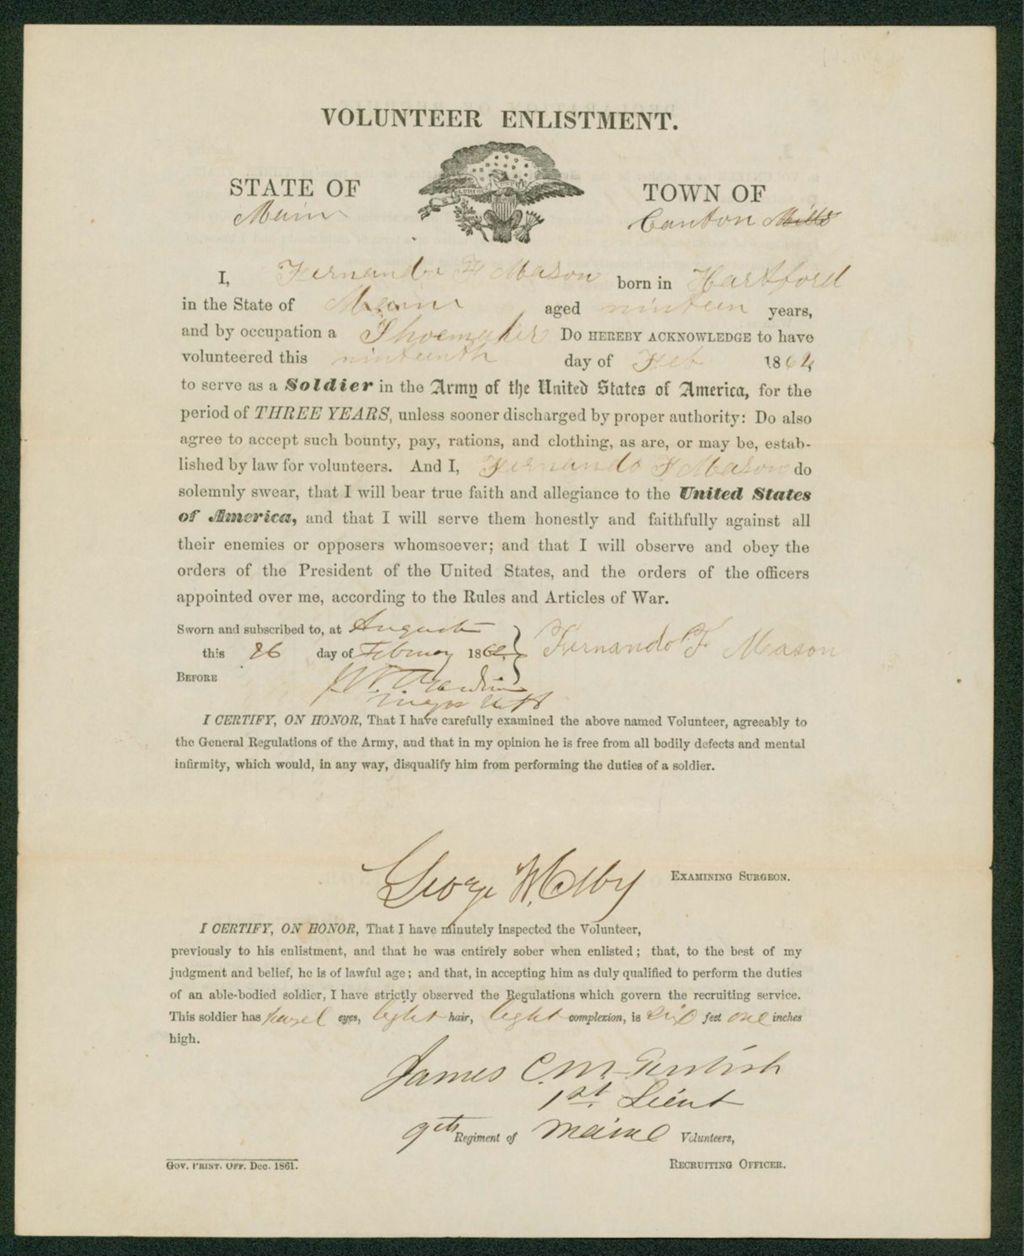 VOLUNTEER ENLISTMENT.
STATE OF
TOWN OF
Maine
Canton Mills
I, Fernando F Mason born in Hartford
in the State of Maine aged nineteen years,
and by occupation a Shoemaker DO HEREBY ACKNOWLEDGE to have
volunteered this ninteenth day of Feb 1864
to serve as a Soldier in the Army of the United States of America, for the
period of THREE YEARS, unless sooner discharged by proper authority: Do also
agree to accept such bounty, pay, rations, and clothing, as are, or may be, estab-
lished by law for volunteers. And I, Fernando F Mason do
solemnly swear, that I will bear true faith and allegiance to the United States
of America, and that I will serve them honestly and faithfully against all
their enemies or opposers whomsoever; and that I will observe and obey the
orders of the President of the United States, and the orders of the officers
appointed over me, according to the Rules and Articles of War.
Sworn and subscribed to, at Augusta
this 26 day of February 1864 Fernando F Mason
BEFORE
I CERTIFY, ON HONOR, That I have carefully examined the above named Volunteer, agreeably to
the General Regulations of the Army, and that in my opinion he is free from all bodily defects and mental
infirmity, which would, in any way, disqualify him from performing the duties of a soldier.
George W. Colby EXAMINING SURGEON.
I CERTIFY, ON HONOR, That I have minutely inspected the Volunteer,
previously to his enlistment, and that he was entirely sober when enlisted; that, to the best of my
judgment and belief, he is of lawful age; and that, in accepting him as duly qualified to perform the duties
of an able-bodied soldier, I have strictly observed the Regulations which govern the recruiting service.
This soldier has hazel eyes, light hair, light complexion, is six feet one inches
high.
James C. M.
1st. Lieut
9th Regiment of Maine Volunteers,
GOV. PRINT. OFF. Dec. 1861.
RECRUITING OFFICER.